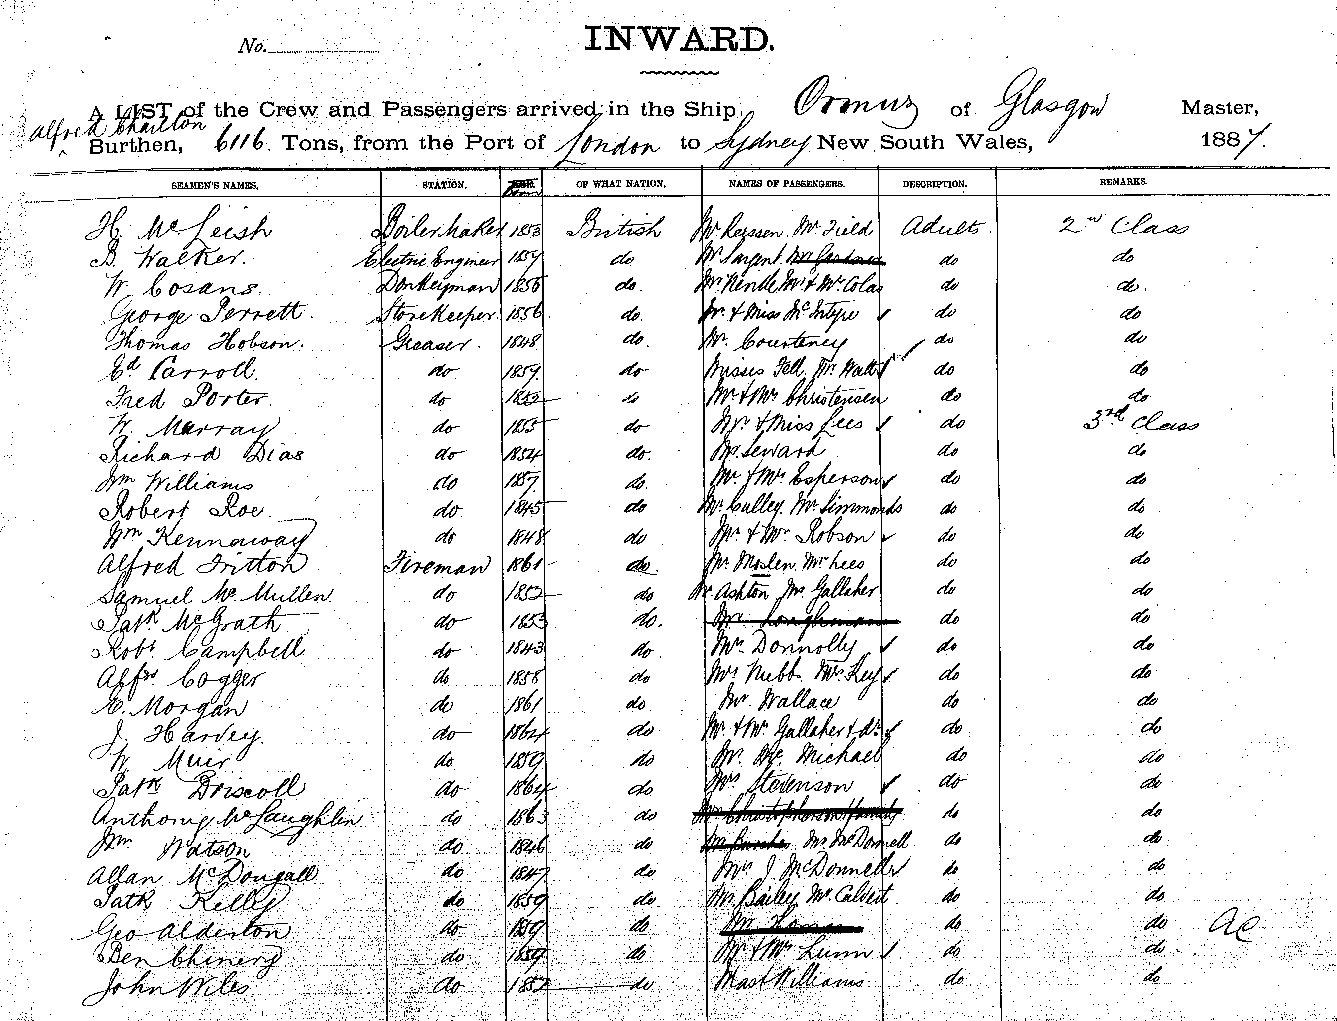 No.
INWARD.
A LIST of the Crew and Passengers arrived in the Ship, Ormuz of Glasgow Master,
Alfred Charlton
Burthen, 6116 Tons, from the Port of London to Sydney New South Wales, 1887.
SEAMEN'S NAMES. STATION. Born OF WHAT NATION. NAMES OF PASSENGERS. DESCRIPTION. REMARKS.
H. McLeish Boilermaker 1853 British Mr Field Adults 2nd Class
B. Walker Electric Engineer 1859 do Mr Sargent do do
W. Cosans Donkeyman 1856 do do do
George Perrett Storekeeper 1856 do Mr & Miss McIntyre do do
Thomas Hobson Greaser 1848 do Mr Courteney do do
Ed Carroll do 1859 do Misses Fell Mr Watt do do
Fred Porter do 1852 do Mr & Mrs Christensen do do
W. Murray do 1855 do Mr & Miss Lees do 3rd Class
Richard Dias do 1854 do Mr Seward do do
Wm Williams do 1857 do Mr & Mrs Esperson do do
Robert Roe do 1845 do Mr Culley Mr Simmonds do do
Wm Kennaway do 1848 do Mr & Mrs Robson do do
Alfred Fritton Fireman 1861 do Mr Moslen Mr Lees do do
Samuel McMullen do 1852 do Mr Ashton Mr Gallaher do do
Patk McGrath do 1853 do do do
Robt Campbell do 1843 do Mrs Donnolly do do
Alfd Cogger do 1858 do Mrs Nibb Mrs Key do do
E. Morgan do 1861 do Mr Wallace do do
J. Harvey do 1864 do Mr & Mrs Gallaher & do do
W. Muir do 1859 do Mr McMichael do do
Patk Driscoll do 1864 do Mrs Stevenson do do
Anthony McLaughlin do 1863 do Mr Christopherson & family do do
Wm Watson do 1846 do Mr McDonnell do do
Allan McDougall do 1847 do Mrs J McDonnell do do
Patk Kelly do 1859 do Mr Bailey Mr Calvert do do
Geo Alderton do 1859 do do do
Ben Chinery do 1859 do Mr & Mrs Lunn do do
John Wiles do 1852 do Mast Williams do do